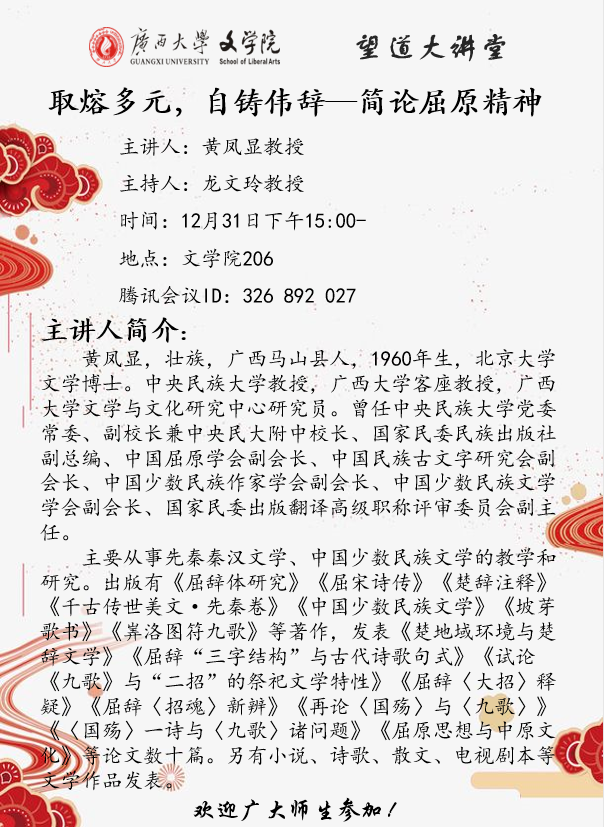 廣西大學 文学院 望道大讲堂
GUANGXI UNIVERSITY School of Liberal Arts
取熔多元，自铸伟辞—简论屈原精神
主讲人：黄凤显教授
主持人：龙文玲教授
时间：12月31日下午15:00-
地点：文学院206
腾讯会议ID：326 892 027
主讲人简介：
黄凤显，壮族，广西马山县人，1960年生，北京大学
文学博士。中央民族大学教授，广西大学客座教授，广西
大学文学与文化研究中心研究员。曾任中央民族大学党委
常委、副校长兼中央民大附中校长、国家民委民族出版社
副总编、中国屈原学会副会长、中国民族古文字研究会副
会长、中国少数民族作家学会副会长、中国少数民族文学
学会副会长、国家民委出版翻译高级职称评审委员会副主
任。
主要从事先秦秦汉文学、中国少数民族文学的教学和
研究。出版有《屈辞体研究》《屈宋诗传》《楚辞注释》
《千古传世美文·先秦卷》《中国少数民族文学》《坡芽
歌书》《洛图符九歌》等著作，发表《楚地域环境与楚
辞文学》《屈辞“三字结构”与古代诗歌句式》《试论
《九歌》与“二招”的祭祀文学特性》《屈辞〈大招〉释
疑》《屈辞〈招魂〉新辨》《再论〈国殇〉与〈九歌〉》
《〈国殇〉一诗与〈九歌〉诸问题》《屈原思想与中原文
化》等论文数十篇。另有小说、诗歌、散文、电视剧本等
文学作品发表。
欢迎广大师生参加！